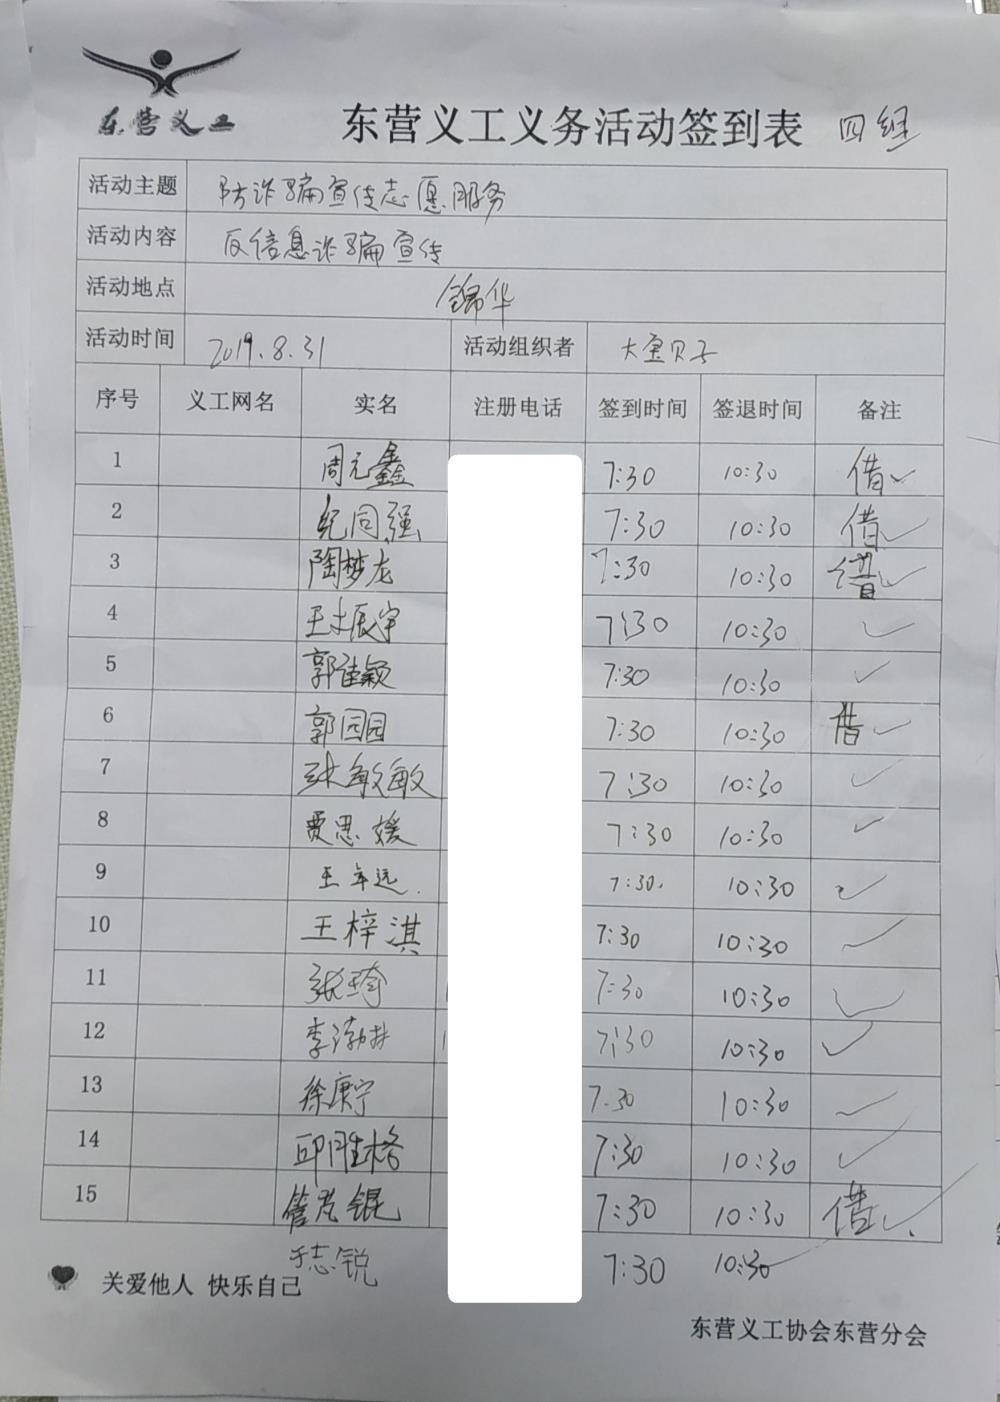 东营义工
东营义工义务活动签到表 四组
活动主题 防诈骗宣传志愿服务
活动内容 反信息诈骗宣传
活动地点 锦华
活动时间 2019.8.31 活动组织者 大宝贝子
序号 义工网名 实名 注册电话 签到时间 签退时间 备注
1 周元鑫 7:30 10:30 借✓
2 纪同强 7:30 10:30 借✓
3 陶梦龙 7:30 10:30 借✓
4 王振宇 7:30 10:30 ✓
5 郭佳颖 7:30 10:30 ✓
6 郭园园 7:30 10:30 借✓
7 张敏敏 7:30 10:30 ✓
8 贾思媛 7:30 10:30 ✓
9 王年远 7:30 10:30 ✓
10 王梓淇 7:30 10:30 ✓
11 张琦 7:30 10:30 ✓
12 李 7:30 10:30 ✓
13 徐康宁 7:30 10:30 ✓
14 邱胜格 7:30 10:30 ✓
15 管 锟 7:30 10:30 借✓
于志锐 7:30 10:30
关爱他人 快乐自己
东营义工协会东营分会